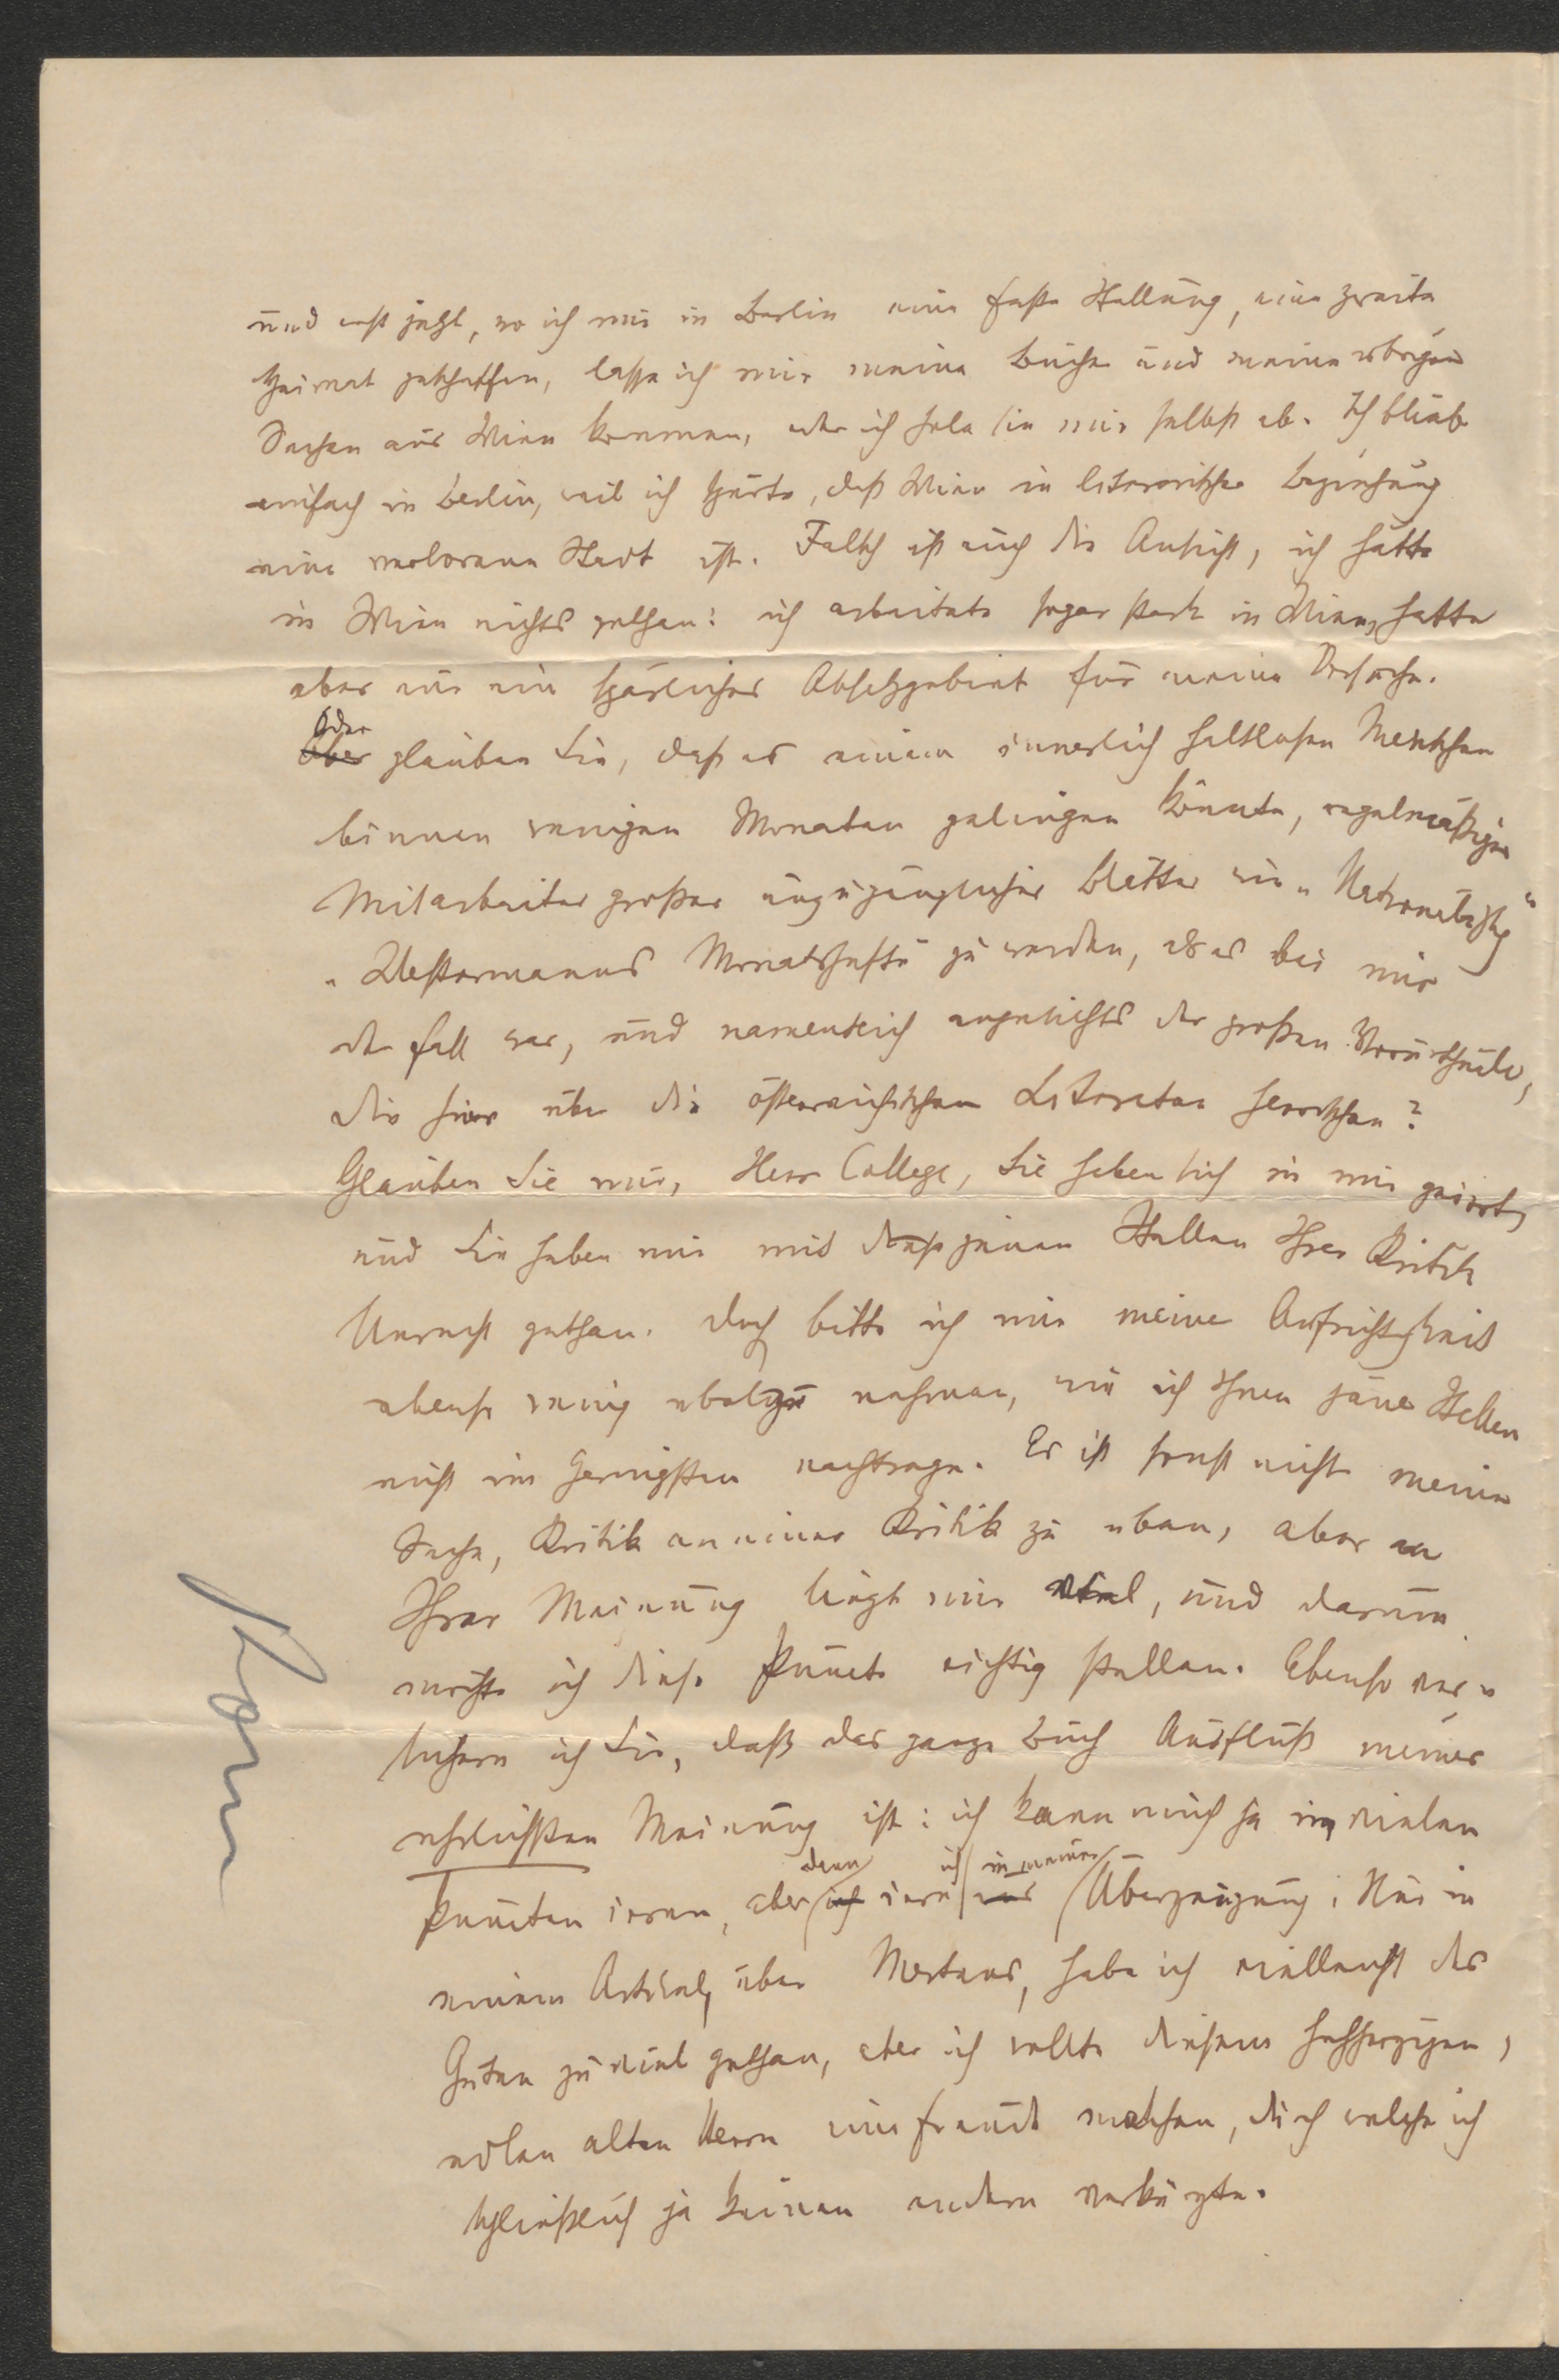 und erst jetzt, wo ich mir in Berlin eine feste Stellung, eine zweite
Heimat geschaffen, lasse ich mir meine Bücher und meine übrigen
Sachen aus Wien kommen, oder ich hole sie mir selbst ab. Ich blieb
einfach in Berlin, weil ich spürte, daß Wien in literarischer Beziehung
eine verlorene Stadt ist. Falsch ist auch die Ansicht, ich hätte
in Wien nichts gethan: ich arbeitete sogar stark in Wien, hatte
aber nur ein spärliches Absatzgebiet für meine Versuche.
Oder
Aber glauben Sie, daß es einem innerlich haltlosen Menschen
binnen wenigen Monaten gelingen könnte, regelmäßiger
Mitarbeiter großer unzugänglicher Blätter wie „Nationalztg“
„Westermanns Monatshefte“ zu werden, als es bei mir
der Fall war, und namentlich angesichts der großen Vorurtheile,
die hier über die österreichischen Literatur herrschen?
Glauben Sie mir, Herr College, Sie haben sich in mir geirrt,
und Sie haben mir mit jenen Stellen Ihrer Kritik
Unrecht gethan. Doch bitte ich mir meine Aufrichtigkeit
ebenso wenig übelzu nehmen, wie ich Ihnen jene Stellen
nicht im Geringsten nachtrage. Es ist sonst nicht meine
Sache, Kritik an einer Kritik zu üben, aber an
Ihrer Meinung liegt mir viel, und darum
möchte ich diese Puncte richtig stellen. Ebenso ver-
sichere ich Sie, daß das ganze Buch Ausfluß meiner
ehrlichsten Meinung ist: ich kann mich ja in vielen
dann ich in meiner
Puncten irren, aber ich irre Überzeugung. Nur in
meinem Artikel, über Mertens, habe ich vielleicht des
Guten zu viel gethan, aber ich wollte diesem hochherzigen,
edlen alten Herrn eine Freude machen, durch welche ich
schließlich ja keinen andern verkürzte.